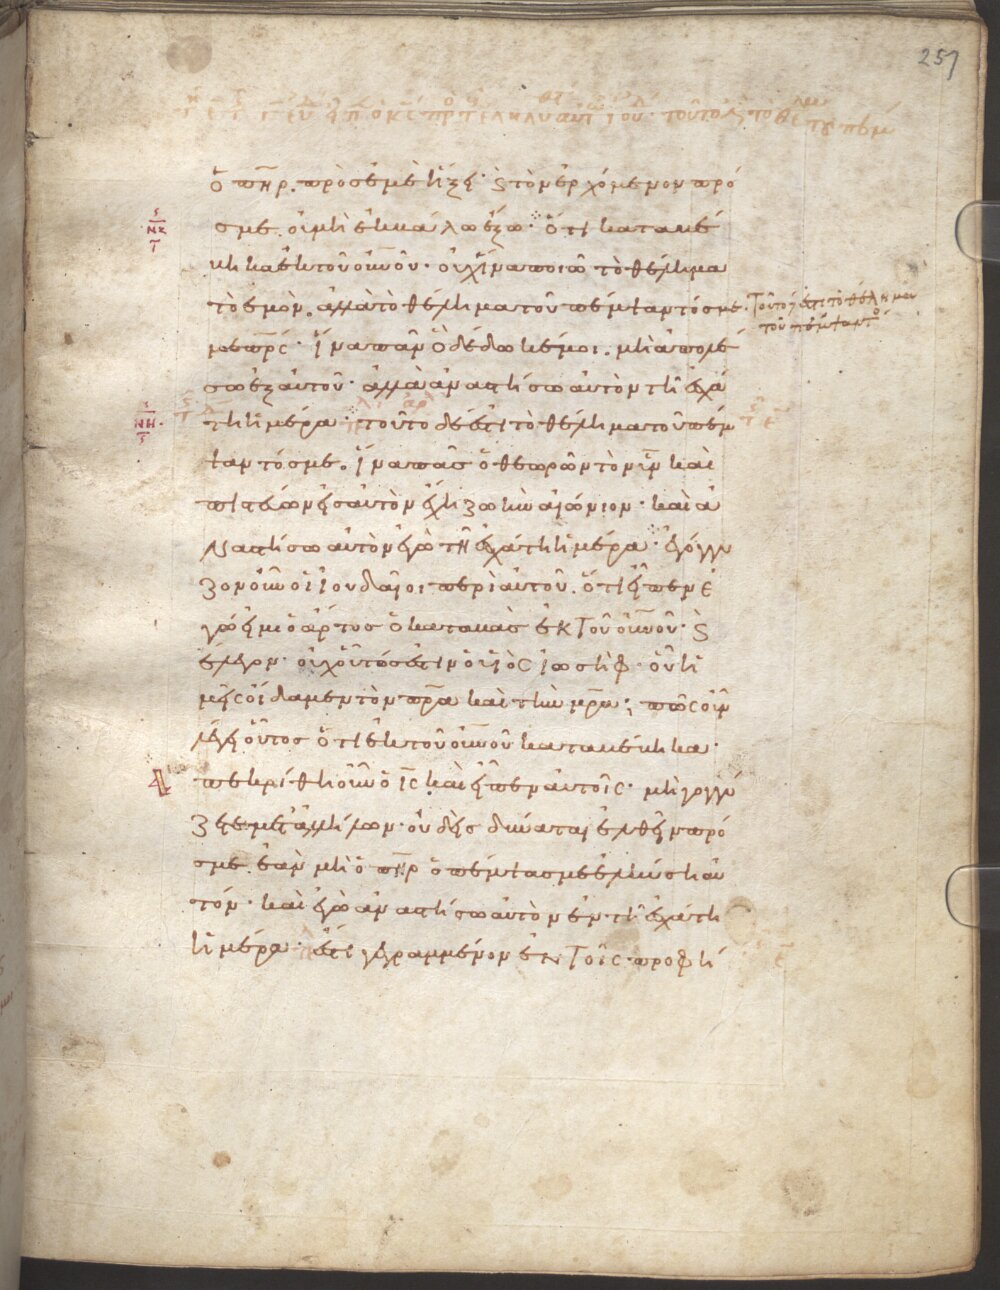 257
ὁ πηρ. πρὸς ἐμὲ ἥξει· ϗ τὸν ἐρχόμενον πρό
σμε. οὐ μὴ ἐκβάλω ἔξω· ὅτι καταβέ
βηκα ἐκ τοῦ οὐνοῦ· οὐχ ἵνα ποιῶ τὸ θέλημα
τὸ ἐμὸν. ἀλλὰ τὸ θέλημα τοῦ πέμψαντός με. τοῦτο δέ ἐστι τὸ θέλημα
τοῦ πέμψαντό
με πρς· ἵνα πᾶν ὃ δέδωκέ μοι. μὴ ἀπολέ
σω ἐξ αὐτοῦ· ἀλλὰ ἀναστήσω αὐτὸν τῇ ἐσχά
τη ἡμέρα· τοῦτο δέ ἐστι τὸ θέλημα τοῦ πέμ
ψαντός με. ἵνα πᾶς ὁ θεωρῶν τὸν υἱν καὶ
πιστεύων εἰς αὐτὸν ἔχη ζωὴν αἰώνιον· καὶ ἀ
ναστήσω αὐτὸν ἐγὼ τῇ ἐσχάτη ἡμέρα· ἐγόγγυ
ζον οὖν οἱ ἰουδαῖοι περὶ αὐτοῦ. ὅτι εἶπεν ἐ
γώ εἰμι ὁ ἄρτος ὁ καταβὰς ἐκ τοῦ οὐνοῦ· ϗ
ἔλεγον· οὐχ οὗτός ἐστιν ὁ υἱὸς ἰωσὴφ· οὗ ἡ
μεῖς οἴδαμεν τὸν πρα καὶ τὴν μρα; πῶς οὖν
λέγει οὗτος ὅτι ἐκ τοῦ οὐνοῦ καταβέβηκα·
πεκρίθη οὖν ὁ ις καὶ εἶπεν αὐτοῖς· μὴ γογγύ
ζετε μετ ἀλλήλων· οὐδεὶς δύναται ἐλθεῖν πρό
σμε. ἐὰν μὴ ὁ πηρ ὁ πέμψας με ἑλκύση αὐ
τόν· καὶ ἐγὼ ἀναστήσω αὐτὸν ἐν τῇ ἐσχάτη
ἡμέρα· ἔστι γεγραμμένον ἐν τοῖς προφή